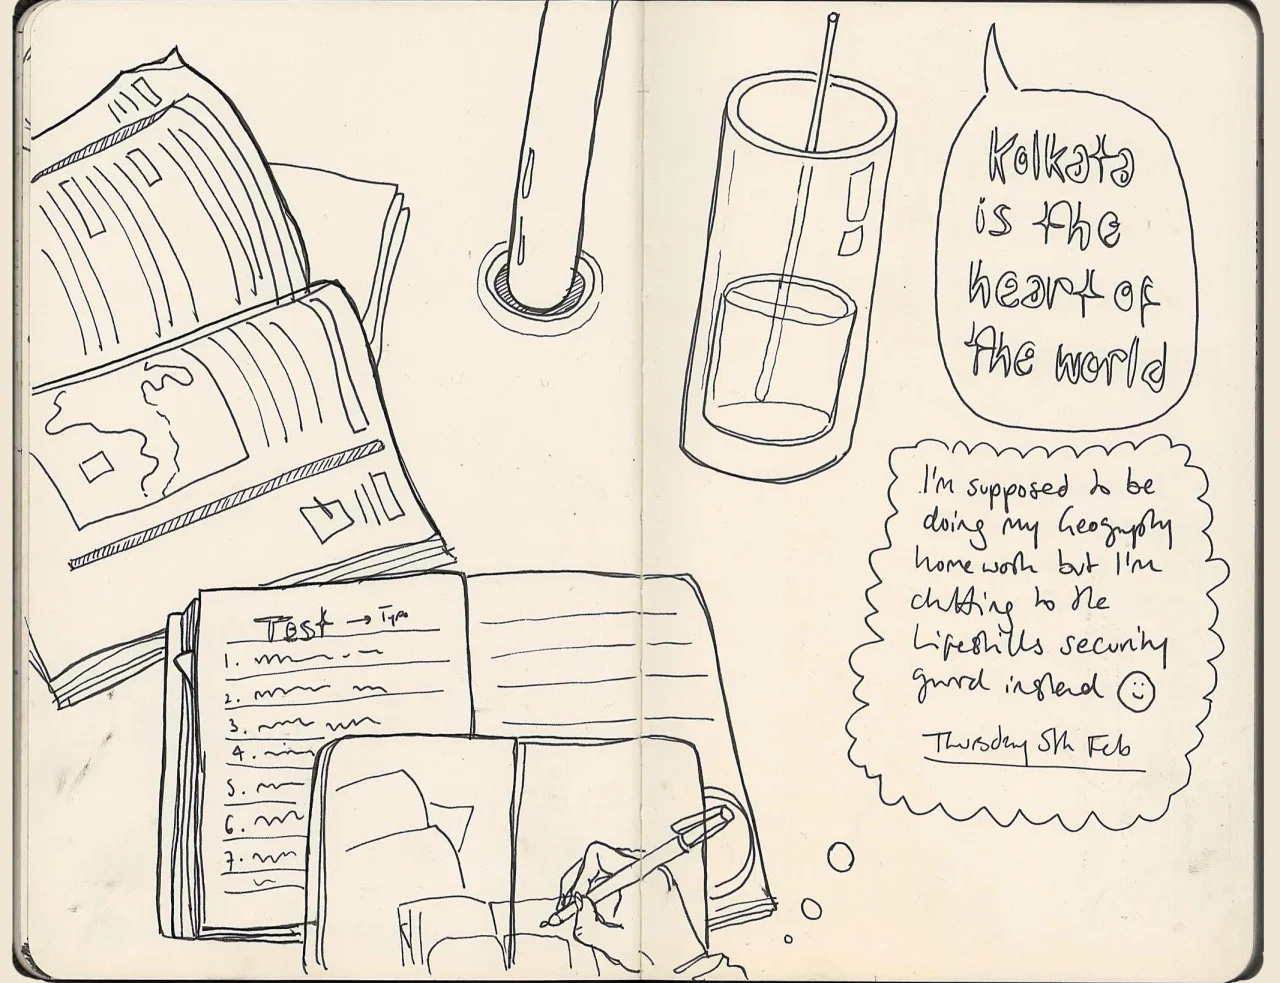 Kolkata
is the
heart of
the world
I'm supposed to be
doing my Geography
homework but I'm
chatting to the
Lifeskills security
guard instead
Thursday 5th Feb
Test → Typo
1.
2.
3.
4.
5.
6.
7.